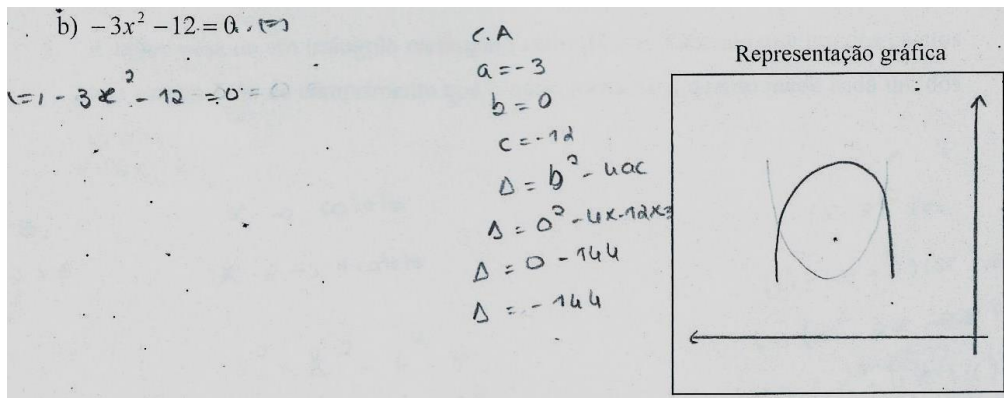 b) −3x² −12 = 0. (=)
(=) - 3x² - 12 = 0
C.A
a = -3
b = 0
c = -12
Δ = b² - 4ac
Δ = 0² - 4x-12x3
Δ = 0 - 144
Δ = - 144
Representação gráfica